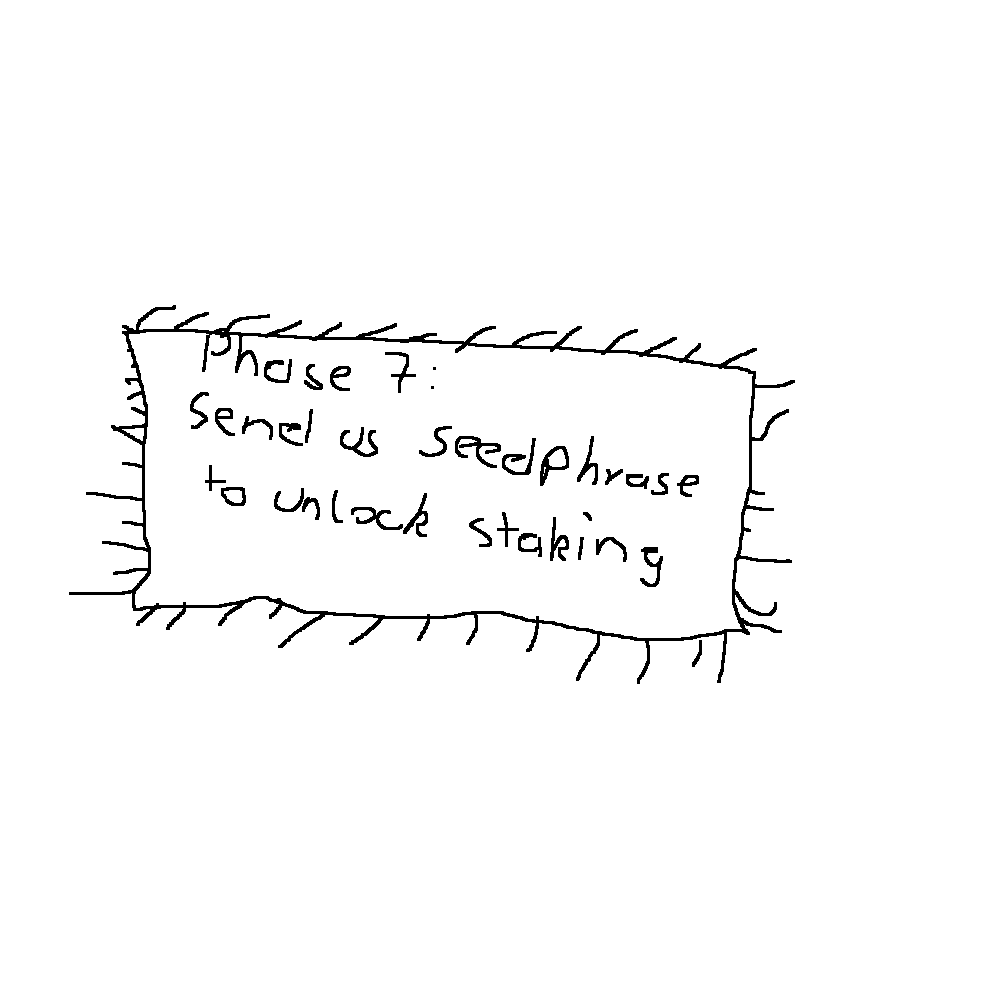 Phase 7:
Send us seedphrase
to unlock staking